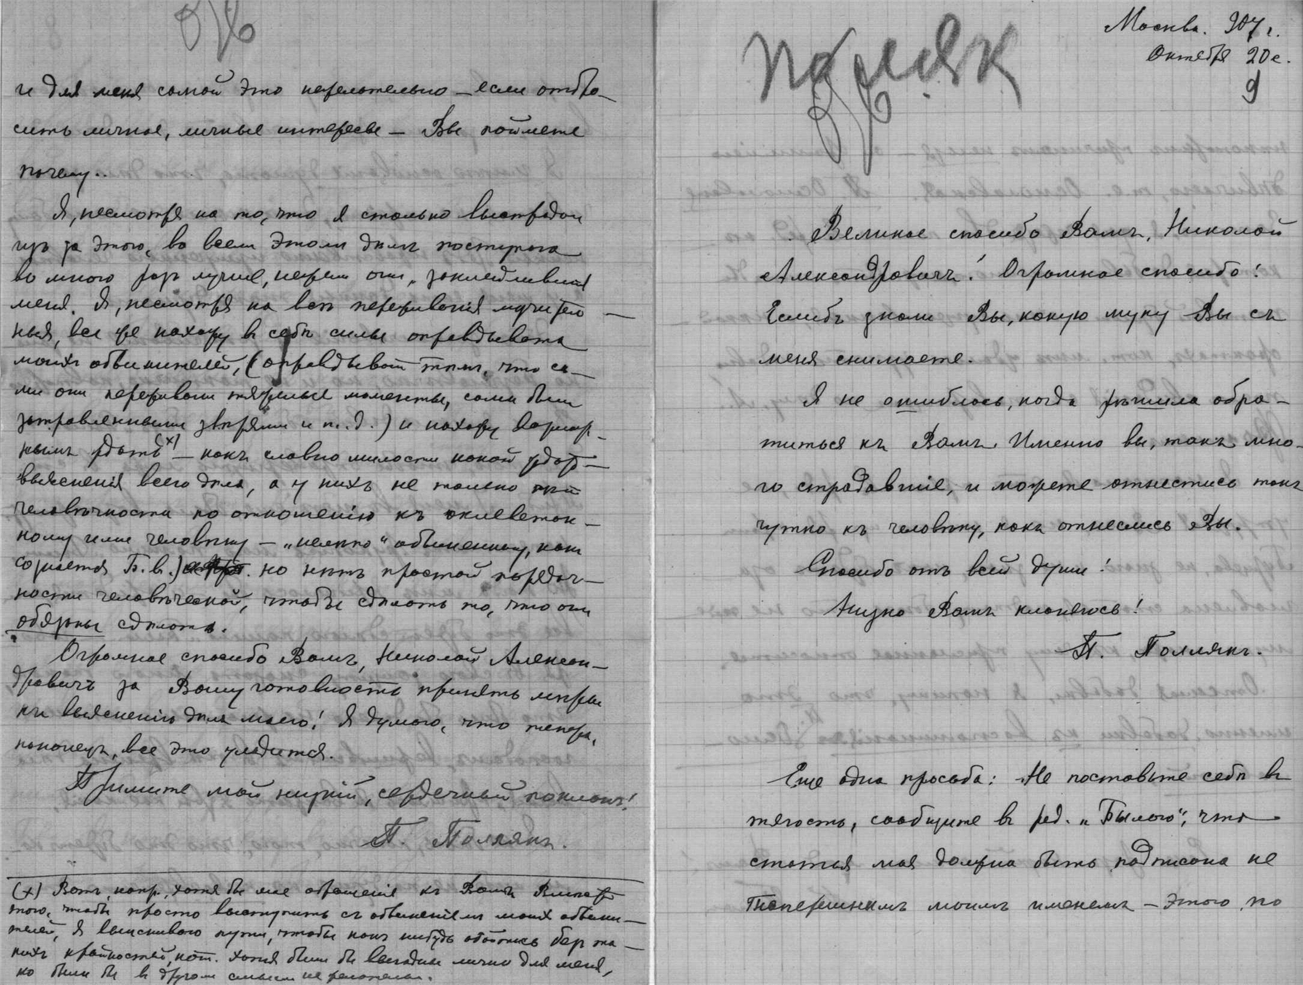 и для меня самой это нежелательно — если отбро-
сить личное, личные интересы — Вы поймете
почему..
Я, несмотря на то, что я столько выстрадала
из за этого, во всем этом деле поступала
во много раз лучше, нежели они, заклеймившие
меня. Я, несмотря на всѣ переживанія мучитель-
ныя, все же нахожу в себѣ силы оправдывать
моихъ обвинителей, (оправдывать тѣмъ, что са-
ми они переживали тяжелые моменты, сами были
затравленными звѣрями и т. д.) и нахожу
ждать (х) — какъ словно милости какой ждать
выясненія всего дѣла, а у нихъ не только нѣт
человѣчности по отношенію къ оклеветан-
ному ими человѣку — „нелепо“ обвиненному, как
сознается Б. в.) но нѣтъ простой порядоч-
ности человѣческой, чтобы сдѣлать то, что они
обязаны сдѣлать.
Огромное спасибо Вамъ, Николай Алексан-
дровичъ за Вашу готовность принять мѣры
къ выясненію дѣла моего! Я думаю, что теперь,
наконецъ, все это уладится.
Примите мой низкій, сердечный поклонъ!
П. Поллякъ.
(х) Вотъ, напр., хотя бы мое обращеніе къ Вамъ Вмѣсто
того, чтобы просто выступить съ обвиненіемъ моихъ обвини-
телей, Я выискиваю пути, чтобы какъ нибудь обойтись безъ та-
кихъ крайностей, кот. хотя были бы выгодны лично для меня,
но были бы в другом смысле не желательны.
Москва. 907 г.
Октября 20 с.
9
Поляк
Великое спасибо Вамъ, Николай
Александровичъ! Огромное спасибо!
Еслибъ знали Вы, какую муку Вы съ
меня снимаете.
Я не ошиблась, когда рѣшила обра-
титься къ Вамъ. Именно вы, такъ мно-
го страдавшіе, и можете отнестись такъ
чутко къ человѣку, какъ отнеслись Вы.
Спасибо отъ всей души!
Низко Вамъ кланяюсь!
П. Поллякъ.
Еще одна просьба: Не поставьте себѣ в
тягость, сообщите в ред. „Былого“, что
статья моя должна быть подписана не
теперешнимъ моимъ именемъ — этого по